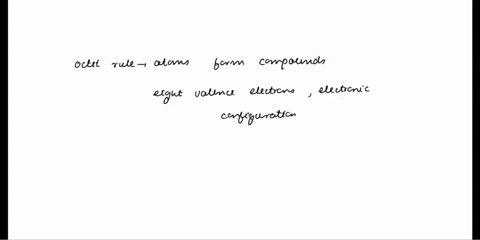 octet rule → atoms form compounds
eight valence electrons, electronic
configuration